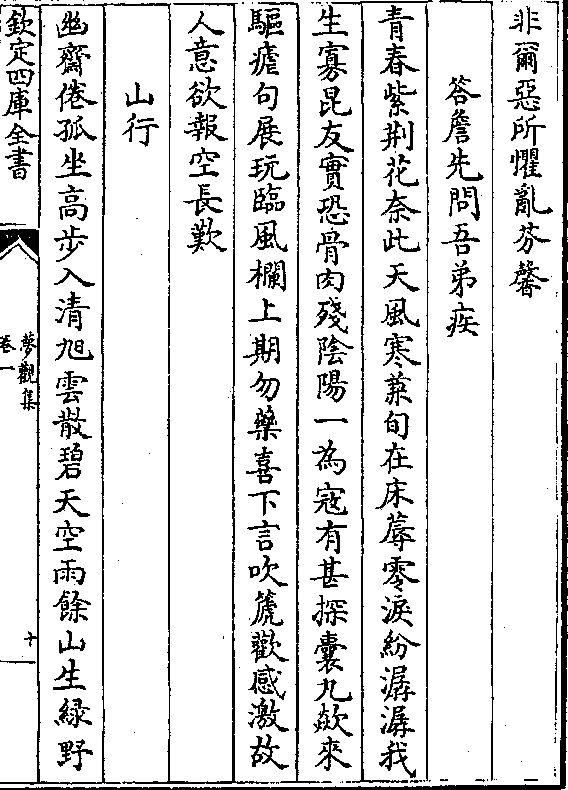 非爾惡所懼亂芬馨
答詹先問吾弟疾
青春紫荆花奈此天風寒蒹旬在床蓐零淚紛潺潺我
生寡昆友實恐骨肉殘陰陽一為寇有甚探囊九欻來
驅瘧句展玩臨風欄上期勿藥喜下言吹篪歡感激故
人意欲報空長歎
山行
幽齋倦孤坐高步入清旭雲散碧天空雨餘山生緑野
欽定四庫全書
夢觀集
卷一
十